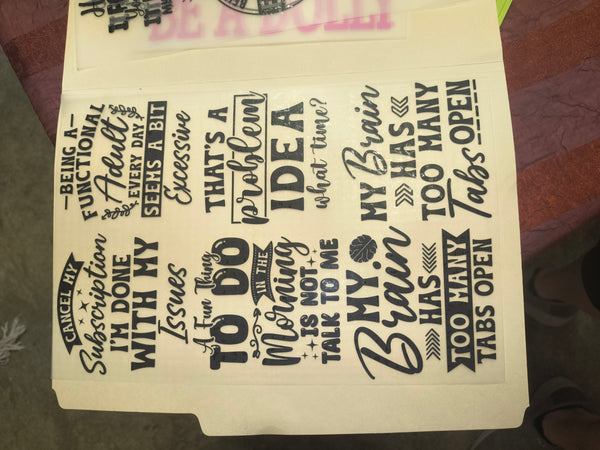 BE A DOLLY
CANCEL MY
Subscription
I'M DONE
WITH MY
Issues
-BEING A-
FUNCTIONAL
Adult
EVERY DAY
SEEMS A BIT
Excessive
A Fun Thing
TO DO
IN THE
Morning
IS NOT
TALK TO ME
THAT'S A
problem
IDEA
what time?
MY
Brain
HAS
TOO MANY
TABS OPEN
MY Brain
HAS
TOO MANY
Tabs OPEN